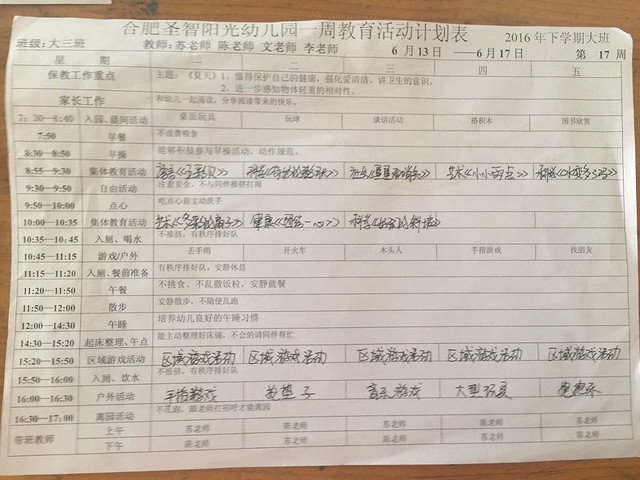 合肥圣智阳光幼儿园一周教育活动计划表
2016 年下学期大班
班级:大三班 教师:苏老师 陈老师 文老师 李老师 6 月 13 日 ——6 月 17 日 第 17 周
星 期 一 二 三 四 五
保教工作重点 主题:《夏天》1、懂得保护自己的健康,强化爱清洁、讲卫生的意识。
2、进一步感知物体轻重的相对性。
家长工作 和幼儿一起阅读,分享阅读带来的快乐。
7:30—8:40 入园、晨间活动 桌面玩具 玩球 谈话活动 搭积木 图书欣赏
7:50 早餐 不浪费粮食
8:30—8:50 早操 能够积极参与早操活动,动作规范。
8:55—9:30 集体教育活动 艺术《小小雨点》
9:30—9:50 自由活动 注意安全,不与同伴推挤打闹
9:50—10:00 点心 吃点心前主动洗手
10:00—10:35 集体教育活动 健康《团结一心》
10:35—10:45 入厕、喝水 不推挤,有秩序排好队
10:45—11:15 游戏/户外 丢手绢 开火车 木头人 手指游戏 找朋友
11:15—11:20 入厕、餐前准备 有秩序排好队、安静休息
11:20—11:50 午餐 不挑食、不乱撒饭粒,安静就餐
11:50—12:00 散步 安静散步,不随便乱跑
12:00—14:30 午睡 培养幼儿良好的午睡习惯
14:30—15:20 起床整理、午点 能主动整理好床铺,不会的请同伴帮忙
15:20—15:50 区域游戏活动 区域游戏活动 区域游戏活动 区域游戏活动 区域游戏活动 区域游戏活动
15:50—16:00 入厕、饮水 不推挤,有秩序排好队
16:00—16:30 户外活动 手指游戏 音乐游戏 大型玩具
16:30—17:00 离园活动 不乱跑,跟老师打招呼才能离园
带班教师 上午 苏老师 陈老师 苏老师 陈老师 苏老师
下午 陈老师 苏老师 陈老师 苏老师 陈老师